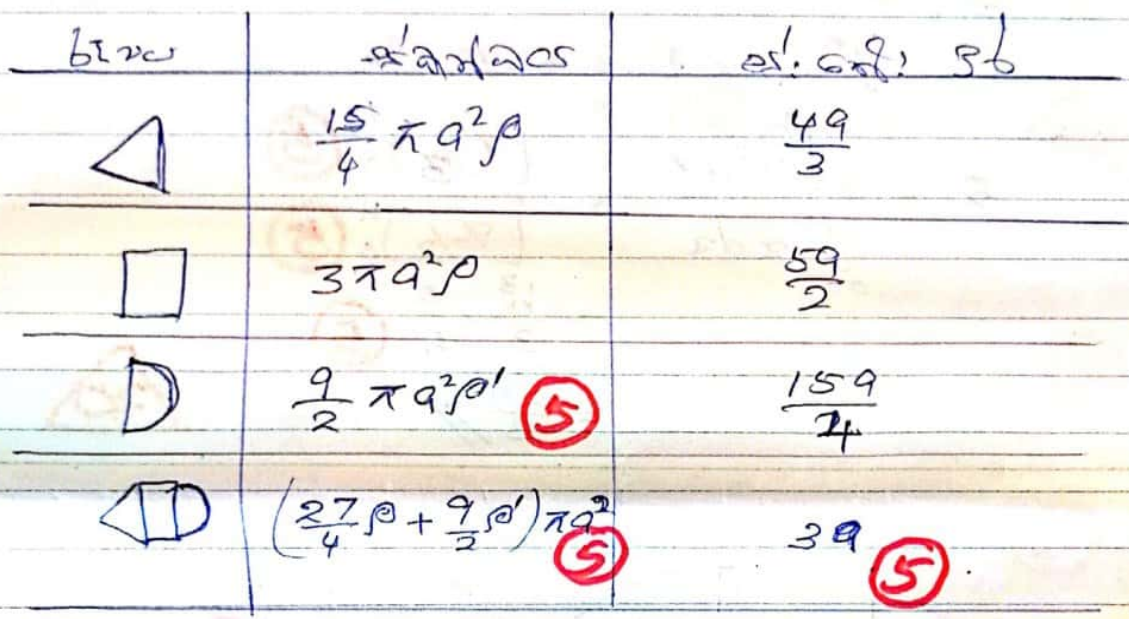 රූපය ස්කන්ධය දුර
15/4 πa²ρ 4a/3
3πa²ρ 5a/2
9/2 πa²ρ' 5 15a/4
(27/4 ρ + 9/2 ρ')πa² 5 3a 5